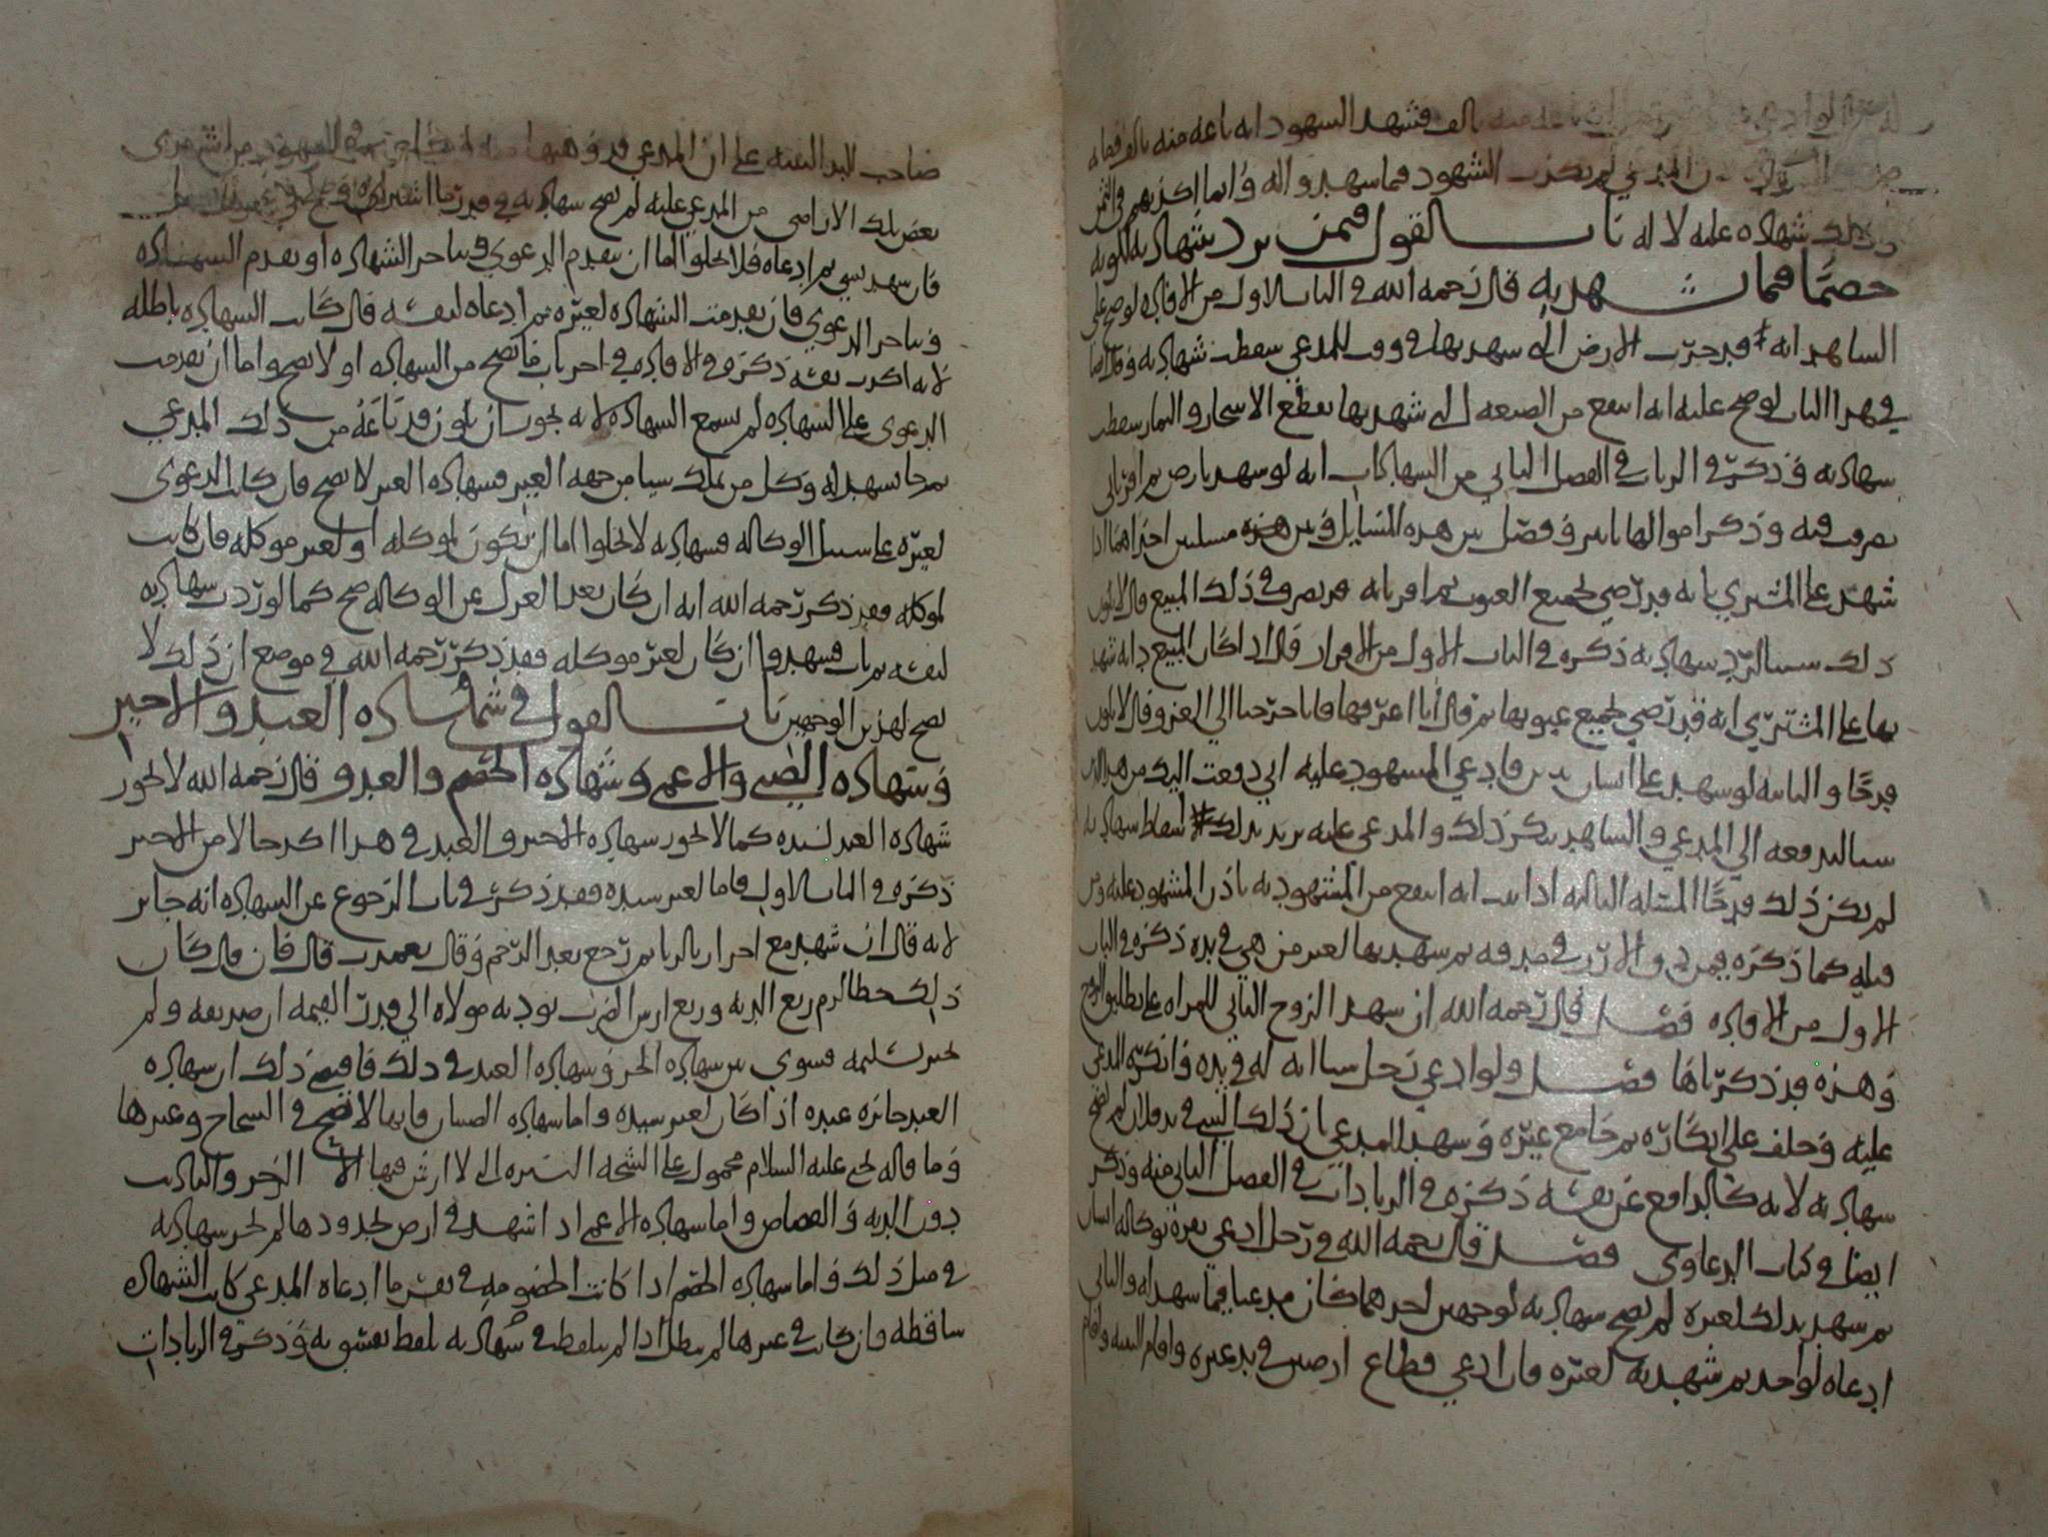 بالف فشهد السهود انه باعه منه بالف
المدعي لم يكذب الشهود فيما سهدوا له وانما اكذبهم في الثمن
شهاده عليه لا له باب القول فيمن يرد شهادته لكونه
خصما فيما شهد به قال رحمه الله في الباب الاول من الافاده لو صح على
الساهد انه قد حرث الارض التي سهد بها في وقف للمدعي سقطت شهادته وقال ايضا
في هذا الباب لو صح عليه انه انتفع من الضيعه التي شهد بها بقطع الاشجار والثمار سقطت
سهادته وذكر في الزيادات في الفصل الثاني من السهادات انه لو سهد بارض ثم اقر باني
تصرفت فيه وذكر اموالها بامر وفصل بين هذه المسايل وبين هذه مسلتين اخراهما اذا
شهد على المشتري بانه قد رضي بجميع العيوب ثم اقر بانه قد تصرف في ذلك المبيع قال لا يكون
ذلك سببا لرد سهادته ذكره في الباب الاول من الاقرار قال اذا كان المبيع دابه شهد
بها على المشتري انه قد رضي بجميع عيوبها ثم قال انا اعرفها فانا خرجنا الى الغزو قال لا يكون
قدحا والثانيه لو سهد على انسان بدين فادعى المسهود عليه اني دفعت اليك من هذا الدين
سيا لتدفعه الى المدعي والساهد ينكر ذلك والمدعى عليه يريد بذلك اسقاط سهادته
لم يكن ذلك قدحا المسئله الثالثه اذا ثبت انه انتفع من المشهود به باذن المشهود عليه
قبله كما ذكره فيمن ثم سهد بها لغير من هي في يده ذكره في الباب
الاول من الافاده فصل قال رحمه الله ان سهد الزوج الثاني للمراه على تطليق الزوج
وهذه قد ذكرناها فصل ولو ادعى رجل سيا انه له في يده فانكره المدعى
عليه وحلف على انكاره ثم جا مع غيره وسهد للمدعي بان ذلك الشي في يد فلان لم تصح
سهادته لانه كالدافع عن نفسه ذكره في الزيادات في الفصل الثاني منه وذكر
ايضا في كتاب الدعاوي فصل قال رحمه الله في رجل ادعى بوكاله انسان
ثم سهد بذلك لغيره لم تصح سهادته لوجهين احدهما كان مدعيا فيما سهد له والثاني
ادعاه لواحد ثم شهد به لغيره فان ادعى قطاع ارضين في يد غيره واقام البينه واقام
صاحب اليد البينه على ان المدعي السهود من اشترى
بعض تلك الاراضي من المدعى عليه لم تصح سهادته في قدر ما اشتراه
فان سهد بسي ثم ادعاه فلا يخلوا اما ان تقدم الدعوى وتتاخر الشهاده او تقدم السهاده
وتتاخر الدعوى فان تقدمت الشهاده لغيره ثم ادعاه لنفسه قال كانت السهاده باطله
لانه اكذب نفسه ذكره في الافاده في اخر باب ما تصح من السهاده او لا تصح واما ان تقدمت
الدعوى على السهاده لم تسمع السهاده لانه يجوز ان يكون قد باعه من ذلك المدعي
ثم جا سهد له وكل من يملك سيا من جهه الغير فسهاده الغير لا تصح فان كانت الدعوى
لغيره على سبيل الوكاله فسهادته لا يخلوا اما ان تكون لموكله او لغير موكله فان كانت
لموكله فقد ذكر رحمه الله انه ان كان بعد العزل عن الوكاله صح كما لو ردت سهادته
لفسقه ثم تاب فسهد وان كان لغير موكله فقد ذكر رحمه الله في موضع ان ذلك لا
تصح لهذين الوجهين باب القول في شهاده العبد والاجير
وشهاده الصبي والاعمى وشهاده الخصم والعدو قال رحمه الله لا تجوز
شهاده العبد لسيده كما لا تجوز سهاده الاجير والعبد في هذا اكد حالا من الاجير
ذكره في الباب الاول فاما لغير سيده فقد ذكر في باب الرجوع عن السهاده انه جايز
لانه قال ان شهد مع احرار بالزنا ثم رجع بعد الرجم وقال تعمدت قال فان قال كان
ذلك خطا لزم ربع الديه وربع ارش الضرب يوديه مولاه الى قدر القيمه ان صدقه ولم
يختر تسليمه فسوى بين سهاده الحر وسهاده العبد في ذلك فاقتضى ذلك ان سهاده
العبد جائزه عنده اذا كان لغير سيده واما سهاده الصبيان فانها لا تصح في السماح وغيرها
وما قاله يحي عليه السلام محمول على الشجه اليسيره التي لا ارش فيها الا الزجر والتاديب
دون الديه والقصاص واما سهاده الاعمى اذا شهد في ارض بحدودها لم تجز سهادته
في مثل ذلك واما سهاده الخصم اذا كانت الخصومه في نفس ما ادعاه المدعي كانت الشهاده
ساقطه وان كانت في غيرها لم تبطل اذا لم يتلفظ في شهادته بلفظ يفسق به وذكر في الزيادات